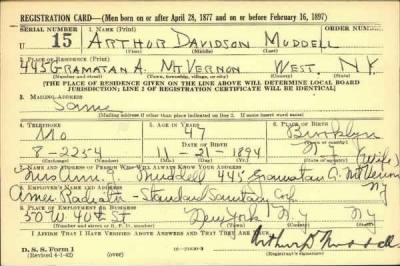 REGISTRATION CARD—(Men born on or after April 28, 1877 and on or before February 16, 1897)
SERIAL NUMBER 1. NAME (Print) ORDER NUMBER
U 15 ARTHUR DAVIDSON MUDDELL
(First) (Middle) (Last)
2. PLACE OF RESIDENCE (Print)
445 GRAMATAN A. MT VERNON WEST. N.Y.
(Number and street) (Town, township, village, or city) (County) (State)
[THE PLACE OF RESIDENCE GIVEN ON THE LINE ABOVE WILL DETERMINE LOCAL BOARD
JURISDICTION; LINE 2 OF REGISTRATION CERTIFICATE WILL BE IDENTICAL]
3. MAILING ADDRESS
Same
[Mailing address if other than place indicated on line 2. If same insert word same]
4. TELEPHONE 5. AGE IN YEARS 6. PLACE OF BIRTH
Mo 47 Brooklyn
DATE OF BIRTH
8-2254 11-21-1894 N.Y.
7. NAME AND ADDRESS OF PERSON WHO WILL ALWAYS KNOW YOUR ADDRESS (Wife)
Mrs Ann J. Muddell 445 Gramatan A. Mt Vernon NY
8. EMPLOYER'S NAME AND ADDRESS
Amer Radiator Standard Sanitary Corp
9. PLACE OF EMPLOYMENT OR BUSINESS
50 W 40th St New York N.Y. NY
(Number and street or R. F. D. number) (Town) (County) (State)
I AFFIRM THAT I HAVE VERIFIED ABOVE ANSWERS AND THAT THEY ARE TRUE.
D. S. S. Form 1
(Revised 4-1-42) (over) Arthur D Muddell
(Registrant's signature)